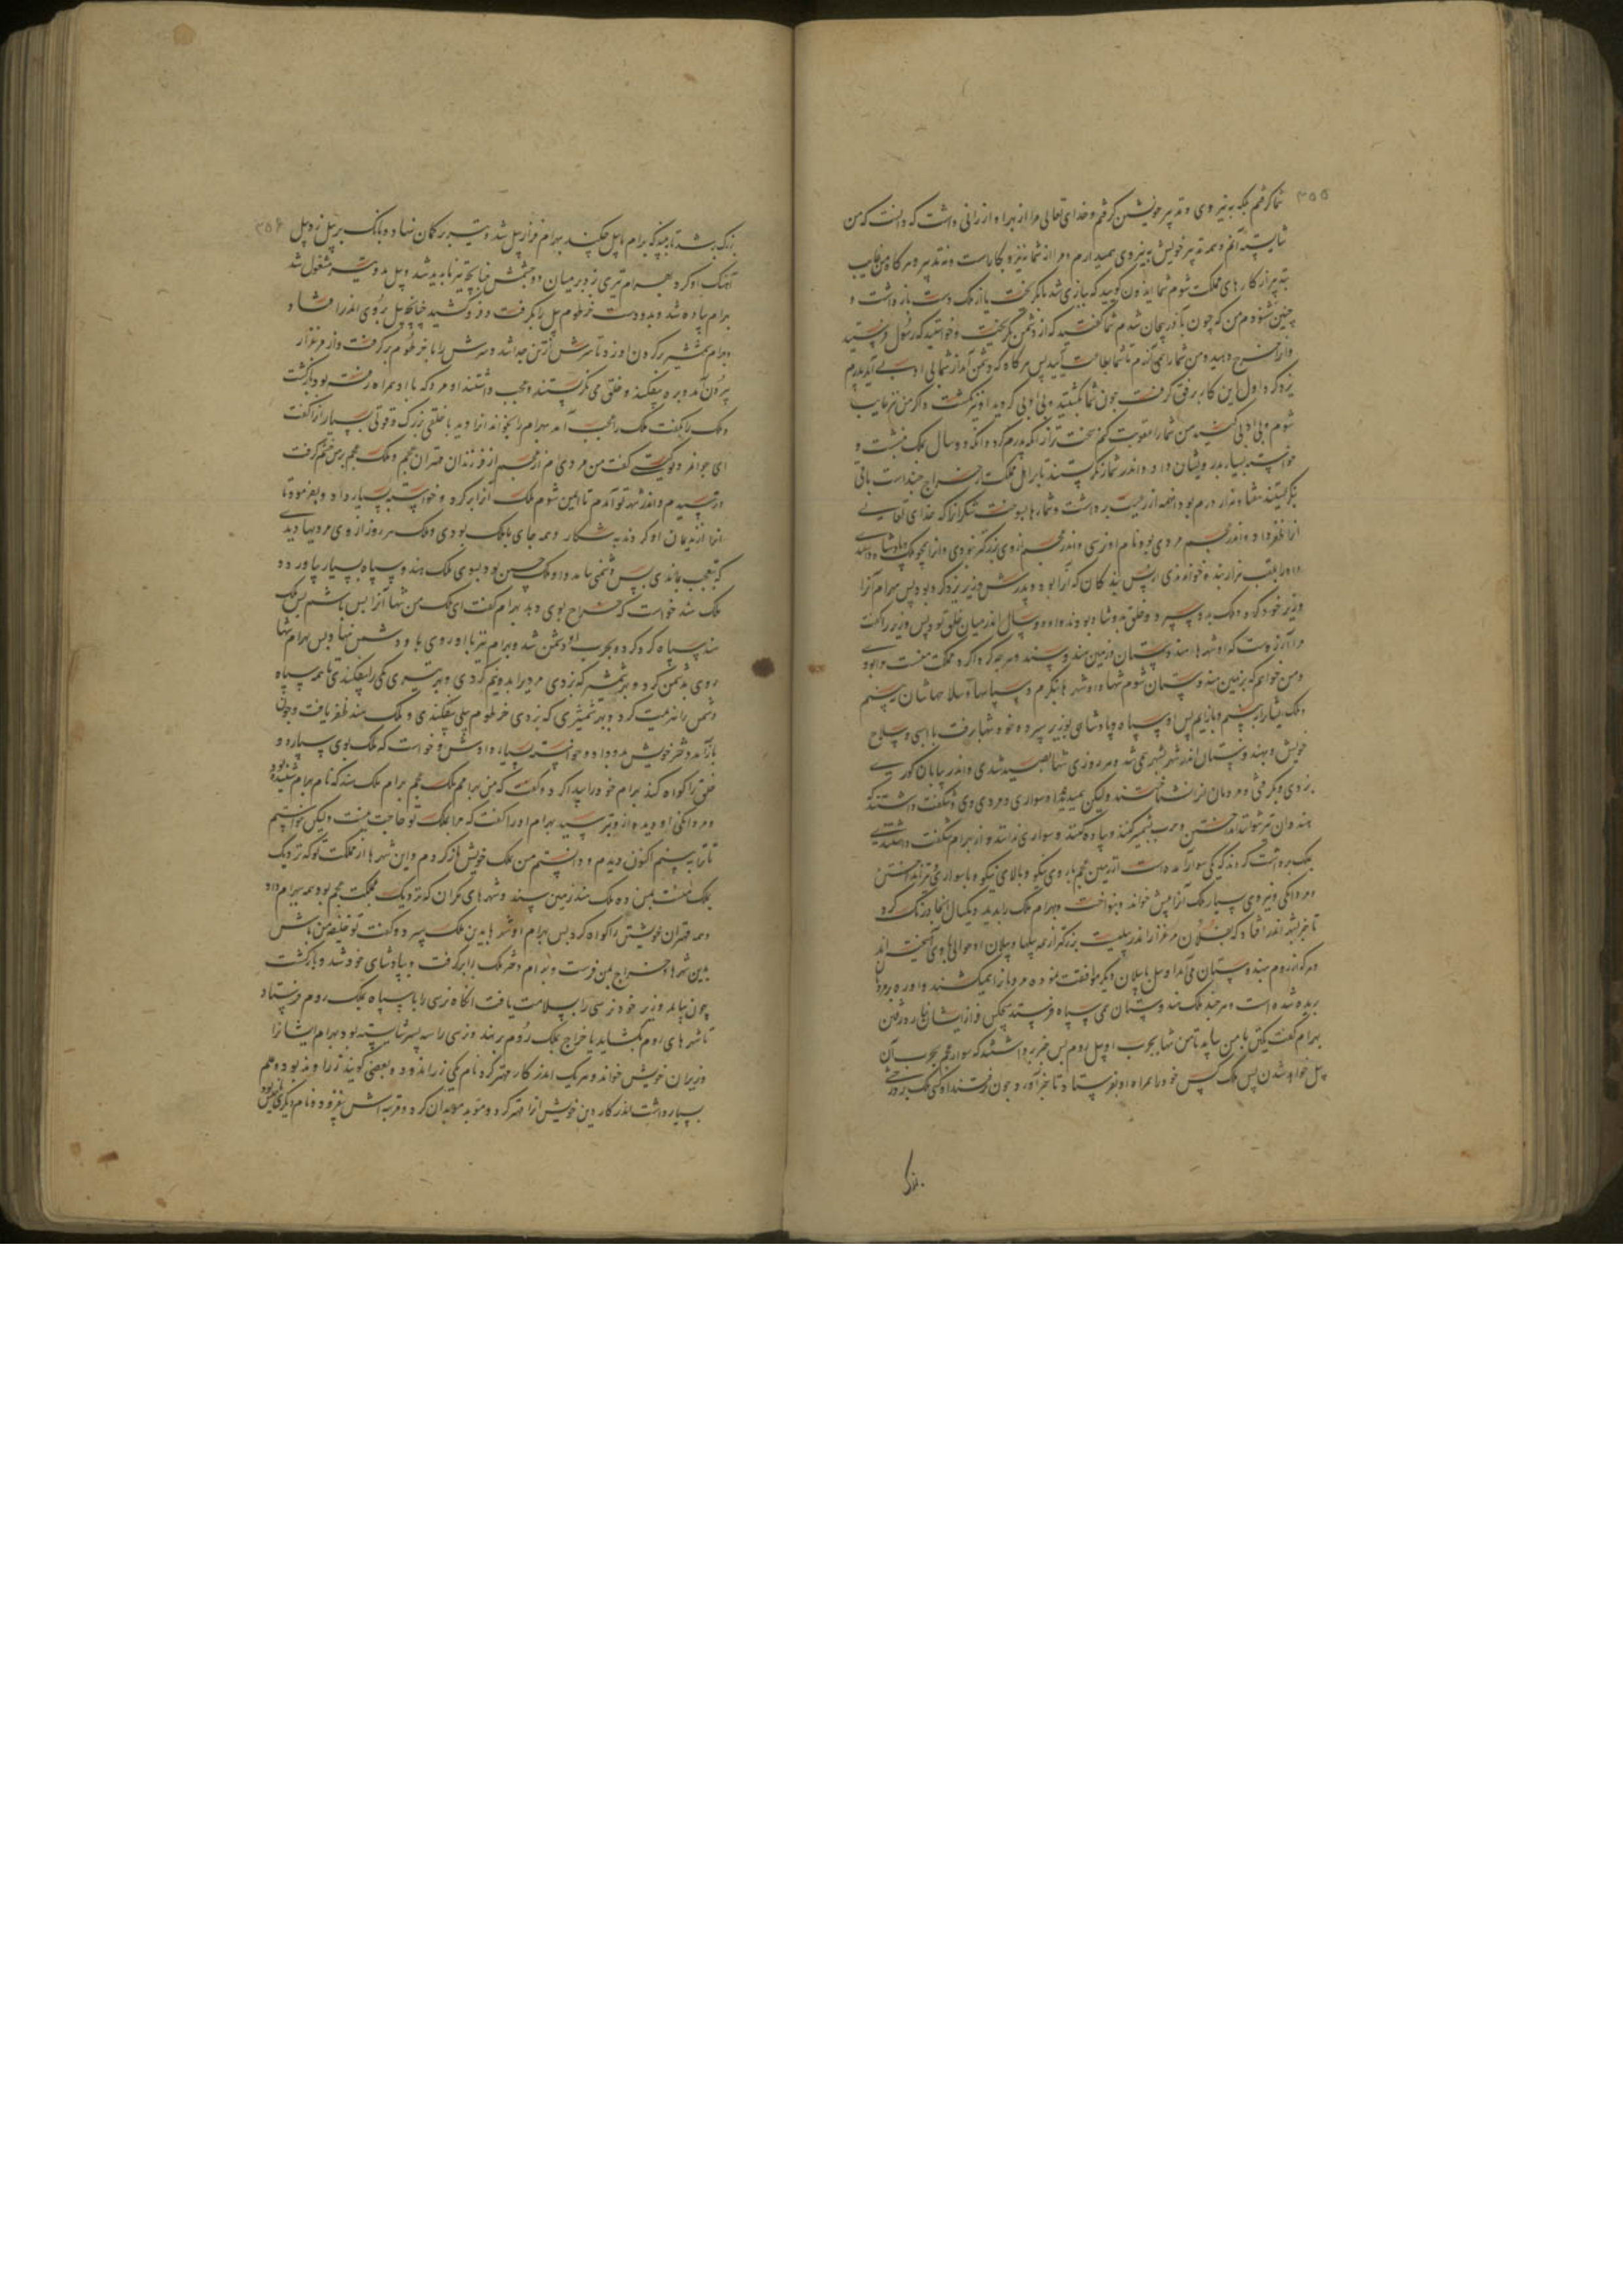 ۳۵۵
شما گرفتم بلکه به نیروی و تدبیر خویشتن گرفتم و خدای تعالی مرا از بهر او ارزانی داشت که دانست که من
شایسته آنم و همه تدبیر خویش به نیروی همیدارم و مرا از شما نیزه بکار است و نه تدبیر و هر گاه من غایب
بتدبیر از کارهای مملکت شوم شما ایدون گویید که ببازی شد یا بگریخت یا از ملک دست بازداشت و
چنین نشود و من که چون بآذربیجان شدم شما گفتید که از دشمن بگریخت و خواستید که رسول فرستید
و او را خراج دهید و من شما را نیازردم تا شما بطاعت آیید پس هر گاه که دشمن آمد از شما بی ادبی آید پدرم
یزدگرد اول این کار برفق گرفت چون شما بگشتید و بی ادبی کردید او نیز بگشت و اگر من نیز غایب
شوم و بی ادبی کنید من شما را عقوبت کنم سخت تر از آنکه پدرم کرد و آنگه دو سال ملک بنشست و
خواسته بسیار بدرویشان داد و اندر شمار نگریستند تا بر اهل مملکت از خراج چند است باقی
بنگریستند هفتاد هزار درم بود آنهمه از رعیت برداشت و شمارها بسوخت شکر آنرا که خدای تعالی
او را ظفر داد و اندر عجم مردی بود نام او نرسی و اندر عجم از وی بزرگتر نبودی و او را بجز ملک و پادشاه
و او را بلقب هزار بنده خواندندی از بس بندگان که او را بود و پدرش وزیر یزدگرد بود پس بهرام او را
وزیر خود کرد و ملک بدو سپرد و خلق بدو شاد بودند و او دو سال اندر میان خلق بود پس وزیر را گفت
مرا آرزوست که شهرهای هندوستان و زمین هند و سند و هر چه گرداگرد مملکت منست
و من خواهم که بزمین هندوستان شوم تنها و او شهرها بنگرم و سپاهها و سلاحهاشان ببینم
و ملک ایشان ببینم و بازآیم پس او سپاه و پادشاهی بوزیر سپرد و خود تنها برفت با اسبی و سلاح
خویش و بهندوستان اندر شهر بشهر می شد و هر روزی تنها بصید شدی و اندر بیابان گور
بزدی و بگرفتی و مردمان او را نشناختند ولیکن همیدیدند سواری و مردی وی و شگفت داشتند که
هندوان تیر نتوانند انداختن و حرب بشمشیر کنند و پیاده کنند و سواری ندانند و از بهرام شگفت داشتندی
ملک را گفتند که یکی سوار آمده است از زمین عجم با روی نیکو و بالای نیکو و با سواری و تیر انداختن
و مردانگی و نیروی بسیار ملک او را پیش خواند و بنواخت و بهرام ملک را بدید و یکسال آنجا درنگ کرد
تا خبر بشهر اندر افتاد که بفلان مرغزار اندر پیلیست بزرگتر از همه پیلها و پیلان او حوالی با وی آمیخته اند
و هر که از روم هندوستان می آمد او پیل با پیلان دیگر موافقت نموده مردمان را همیکشند و او ره مردمان
بریده شده است و هر چند ملک هندوستان می سپاه فرستد هیچکس فراز ایشان نیارد رفتن
بهرام گفت یکی با من بیاید تا من تنها بحرب او پیل روم پس خبر برداشتند که سوار عجم بحرب آن
پیل خواهد شدن پس ملک کس خود را همراه او بفرستاد تا خبر آورد و چون رفتند او کس ملک بر درختی
بزرگ
۳۵۶
بزرگ برشد تا ببیند که بهرام با پیل چه کند بهرام فراز پیل شد و تیر بر کمان نهاد و بانگ بر پیل زد پیل
آهنگ او کرد بهرام تیری زد بر میان دو چشمش چنانچه تیر ناپدید شد و پیل بدو تیر مشغول شد
بهرام پیاده شد و بدو دست خرطوم پیل را بگرفت و فرو کشید چنانچه پیل بروی اندر افتاد و
بهرام شمشیر بر گردن او زد تا سرش از تن جدا شد و سرش را با خرطوم برگرفت و از مرغزار
بیرون آمد و بره بیفکند و خلق می نگریستند و عجب داشتند او مرد که با او همراه رفته بود بازگشت
و ملک را بگفت ملک را عجب آمد بهرام را بخواند او را دید با خلقی بزرگ و قوتی بسیار او را گفت
ای جوانمرد تو کیستی گفت من مردی ام از عجم از فرزندان مهتران عجم و ملک عجم بر من خشم گرفت
و ترسیدم و اندر شهر تو آمدم تا ایمن شوم ملک او را بر کرد و خواسته بسیار داد و بفرمود تا
او را از ندیمان او کردند بشکار و همه جای با ملک بودی و ملک هر روز از وی مردیها دیدی
که بتعجب بماندی پس دشمنی بیامد و او ملک چین بود بسوی ملک هند و سپاه بسیار بیاورد و
ملک هند خواست که خراج بوی دهد بهرام گفت ای ملک من تنها او را بس باشم پس ملک
هند سپاه گرد کرد و بحرب او دشمن شد و بهرام نیز با او روی بدو دشمن نهاد پس بهرام تنها
روی بدشمن کرد و بهر شمشیر که بزدی مردی را بدونیم کردی و بهر تیری یکی را بیفکندی تا همه سپاه
دشمن را هزیمت کرد و بهر شمشیری که بزدی خرطوم پیلی بیفکندی و ملک هند ظفر یافت و چون
بازآمد دختر خویش بدو داد و خواسته بسیار دادش و خواست که ملک بوی سپارد و
خلق را گواه کند بهرام خود را پیدا کرد و گفت که من بهرامم ملک عجم بهرام ملک هند که نام بهرام شنیده بود
و مردانگی او دیده از و بترسید بهرام او را گفت که مرا بملک تو حاجت نیست ولیکن خواستم
تا ترا ببینم اکنون دیدم و دانستم من بملک خویش باز گردم و این شهرها از مملکت تو که نزدیک
بملک منست بمن ده ملک هند زمین سند و شهرهای مکران که نزدیک مملکت عجم بود همه ببهرام داد
و همه مهتران خویش را گواه کرد پس بهرام او شهرها بدین ملک سپرد و گفت تو خلیفه من باش
بدین شهرها و خراج بمن فرست و بهرام دختر ملک را برگرفت و بپادشاهی خود شد و بازگشت
چون بیامد وزیر خود نرسی را بسلامت یافت آنگاه نرسی را با سپاه بملک روم فرستاد
تا شهرهای روم بگشاید یا خراج بملک روم برنهد و نرسی را سه پسر شایسته بود بهرام ایشانرا
وزیران خویش خواند و هر یک اندر کار مهتر کرد نام یکی زراندود و بعضی گویند زراوند بود و علم
بسیار داشت اندر کار دین خویش او را مهتر کرد و موبد موبدان کرد و مرتبه اش بیفزود و نام دیگری